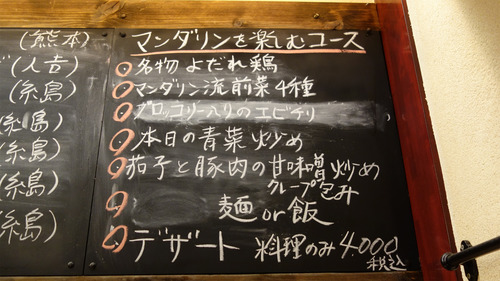 (熊本)
(人吉)
(糸島)
(糸島)
(糸島)
(糸島)
糸島)
マンダリンを楽しむコース
名物よだれ鶏
マンダリン流前菜4種
ブロッコリー入りのエビチリ
本日の青菜炒め
茄子と豚肉の甘味噌炒め
クレープ包み
麺or飯
デザート 料理のみ4.000
税込